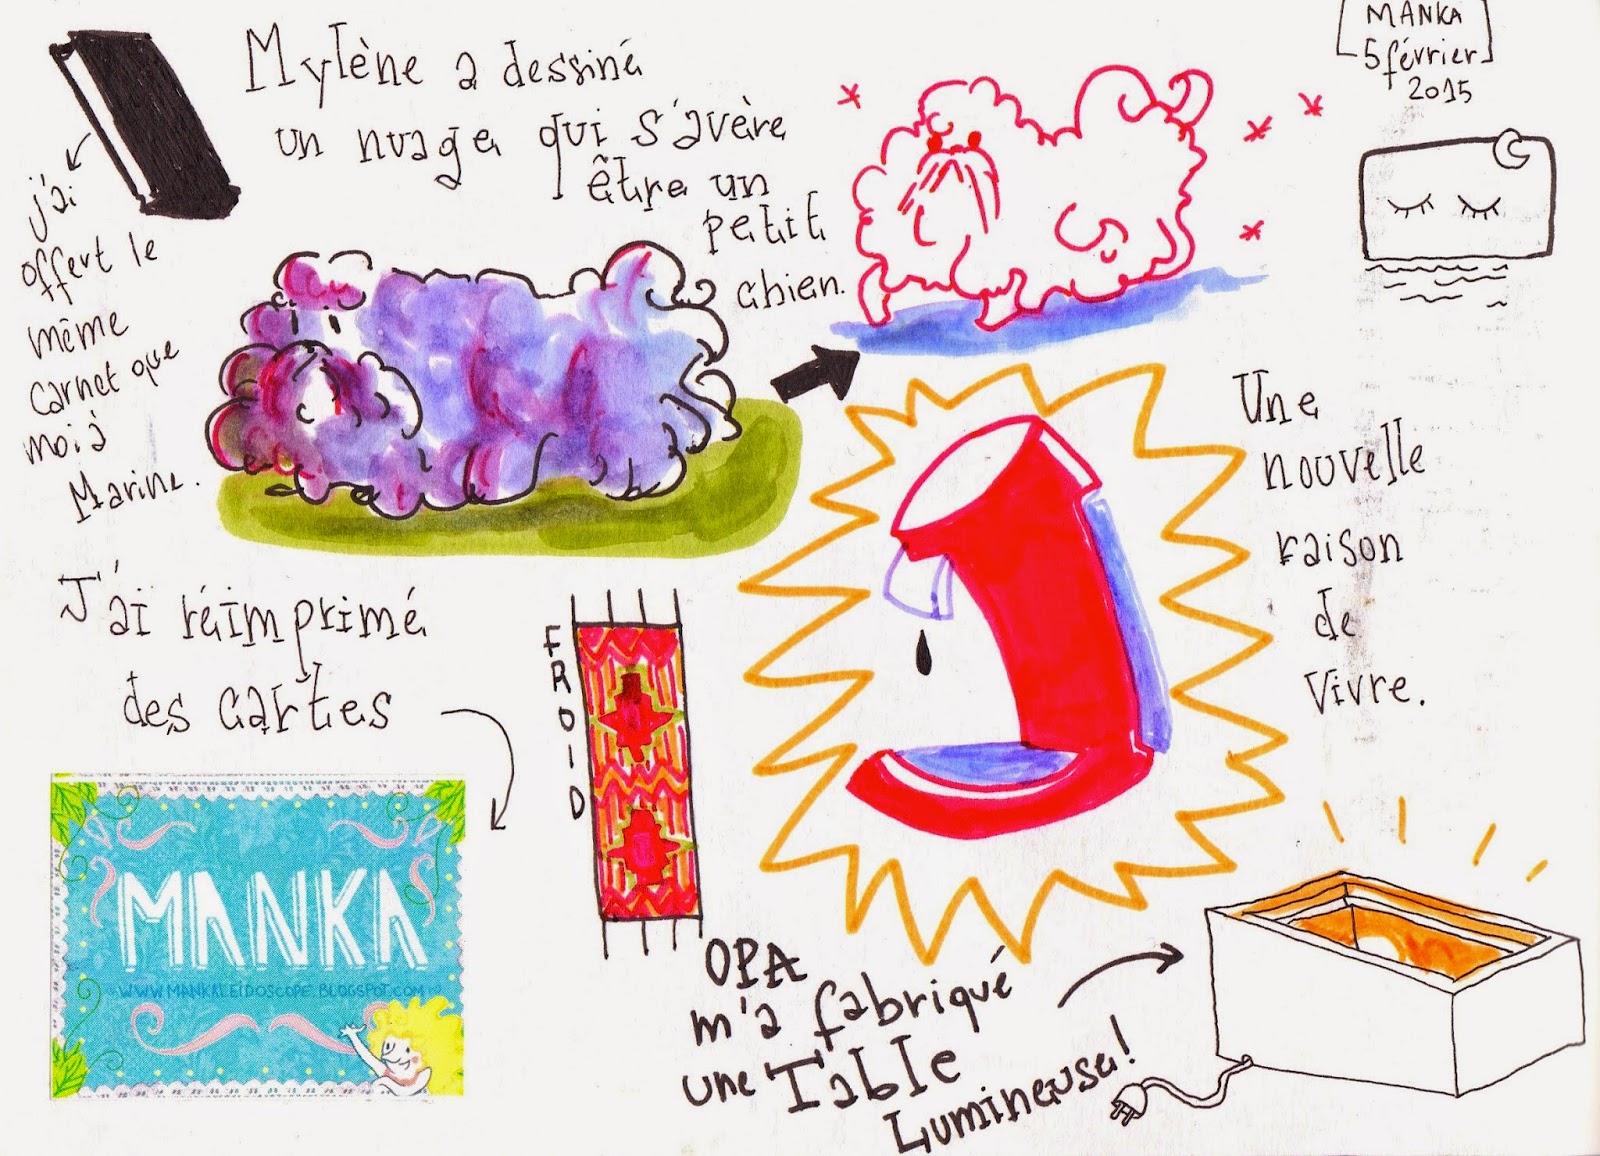 MANKA
5 février
2015
Mylène a dessiné
un nuage qui s'avère
être un
petit
chien.
j'ai
offert le
même
carnet que
moi à
Marine.
Une
nouvelle
raison
de
vivre.
J'ai réimprimé
des cartes
FROID
MANKA
WWW.MANKALEIDOSCOPE.BLOGSPOT.COM
OPA
m'a fabriqué
une Table
Lumineuse!